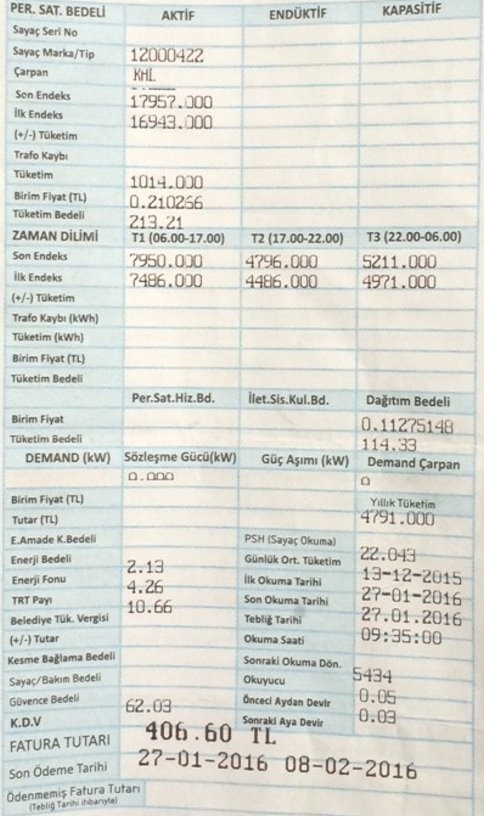 PER. SAT. BEDELİ AKTİF ENDÜKTİF KAPASİTİF
Sayaç Seri No
Sayaç Marka/Tip 12000422
Çarpan KHL
Son Endeks 17957.000
İlk Endeks 16943.000
(+/-) Tüketim
Trafo Kaybı
Tüketim 1014.000
Birim Fiyat (TL) 0.210266
Tüketim Bedeli 213.21
ZAMAN DİLİMİ T1 (06.00-17.00) T2 (17.00-22.00) T3 (22.00-06.00)
Son Endeks 7950.000 4796.000 5211.000
İlk Endeks 7486.000 4486.000 4971.000
(+/-) Tüketim
Trafo Kaybı (kWh)
Tüketim (kWh)
Birim Fiyat (TL)
Tüketim Bedeli
Per.Sat.Hiz.Bd. İlet.Sis.Kul.Bd. Dağıtım Bedeli
Birim Fiyat 0.11275148
Tüketim Bedeli 114.33
DEMAND (kW) Sözleşme Gücü(kW) Güç Aşımı (kW) Demand Çarpan
0.000 0
Birim Fiyat (TL) Yıllık Tüketim
Tutar (TL) 4791.000
E.Amade K.Bedeli PSH (Sayaç Okuma)
Enerji Bedeli 2.13 Günlük Ort. Tüketim 22.043
Enerji Fonu 4.26 İlk Okuma Tarihi 13-12-2015
TRT Payı 10.66 Son Okuma Tarihi 27-01-2016
Belediye Tük. Vergisi Tebliğ Tarihi 27.01.2016
(+/-) Tutar Okuma Saati 09:35:00
Kesme Bağlama Bedeli Sonraki Okuma Dön.
Sayaç/Bakım Bedeli Okuyucu 5434
Güvence Bedeli 62.03 Önceci Aydan Devir 0.05
K.D.V Sonraki Aya Devir 0.03
FATURA TUTARI 406.60 TL
Son Ödeme Tarihi 27-01-2016 08-02-2016
Ödenmemiş Fatura Tutarı
(Tebliğ Tarihi itibariyle)